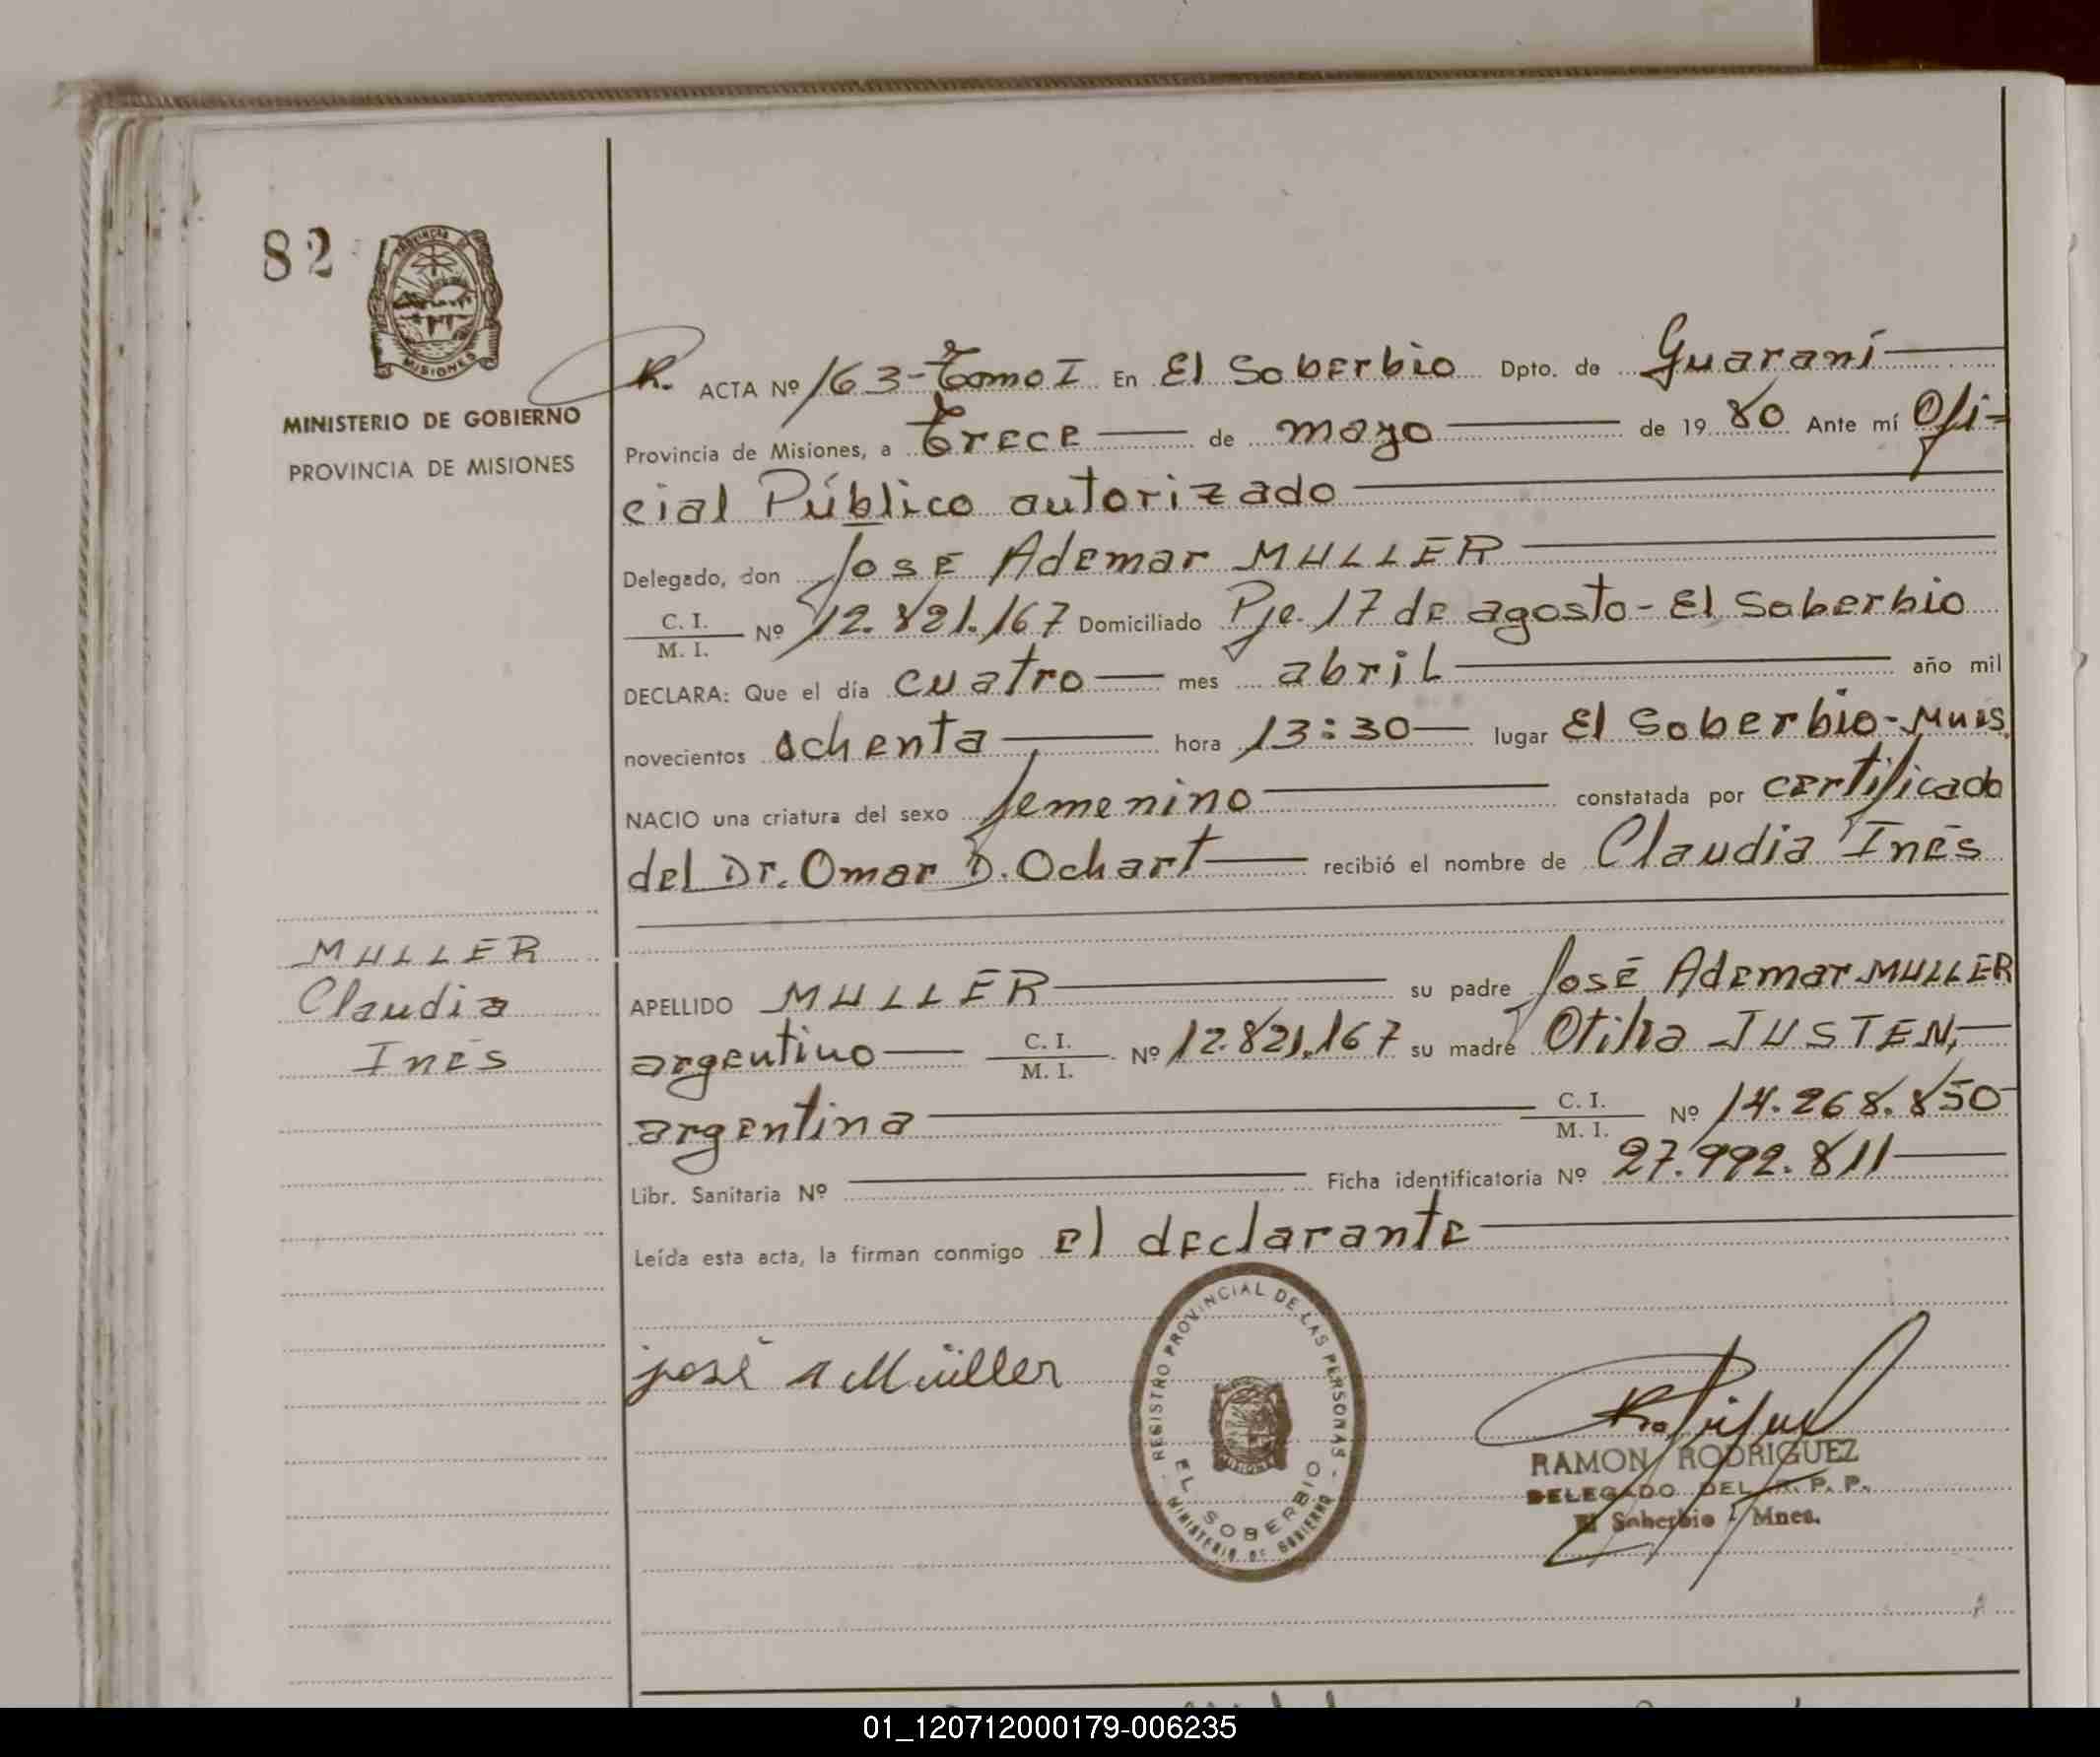 82
PROVINCIA DE
MISIONES
MINISTERIO DE GOBIERNO
PROVINCIA DE MISIONES
R. ACTA Nº 163-Tomo I En El Soberbio Dpto. de Guaraní
Provincia de Misiones, a Trece de mayo de 1980 Ante mí Ofi-
cial Público autorizado
Delegado, don José Ademar MULLER
C. I. / M. I. Nº 12.821.167 Domiciliado Pje. 17 de agosto - El Soberbio
DECLARA: Que el día cuatro mes abril año mil
novecientos ochenta hora 13:30 lugar El Soberbio-Mnes.
NACIO una criatura del sexo femenino constatada por certificado
del Dr. Omar D. Ochart recibió el nombre de Claudia Inés
MULLER
Claudia
Inés
APELLIDO MULLER su padre José Ademar MULLER
argentino C. I. / M. I. Nº 12.821.167 su madre Otilia JUSTEN,
argentina C. I. / M. I. Nº 14.268.850
Libr. Sanitaria Nº Ficha identificatoria Nº 27.992.811
Leída esta acta, la firman conmigo el declarante
REGISTRO PROVINCIAL DE LAS PERSONAS -
EL SOBERBIO
MINISTERIO DE GOBIERNO
josé A Müller
RAMON RODRIGUEZ
DELEGADO DEL R. P. P.
El Soberbio - Mnes.
01_120712000179-006235